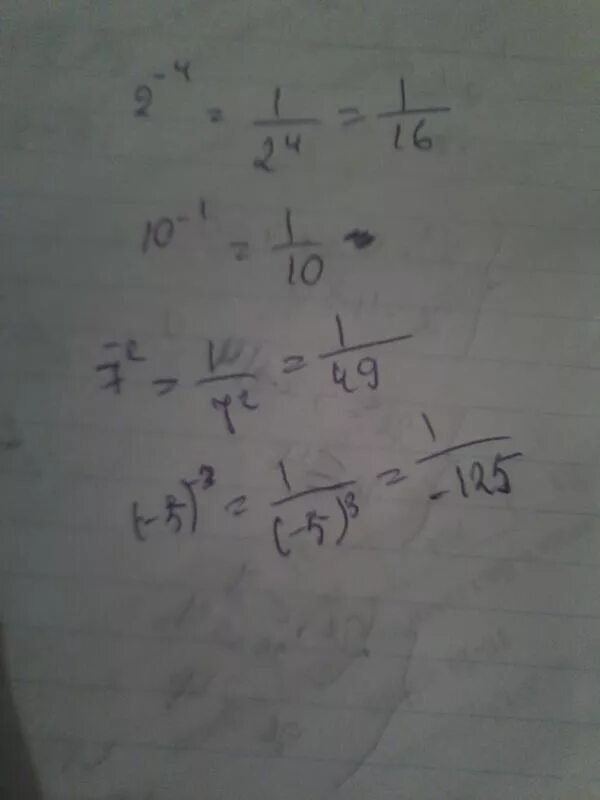 2⁻⁴ = 1/2⁴ = 1/16
10⁻¹ = 1/10
7⁻² = 1/7² = 1/49
(-5)⁻³ = 1/(-5)³ = 1/-125